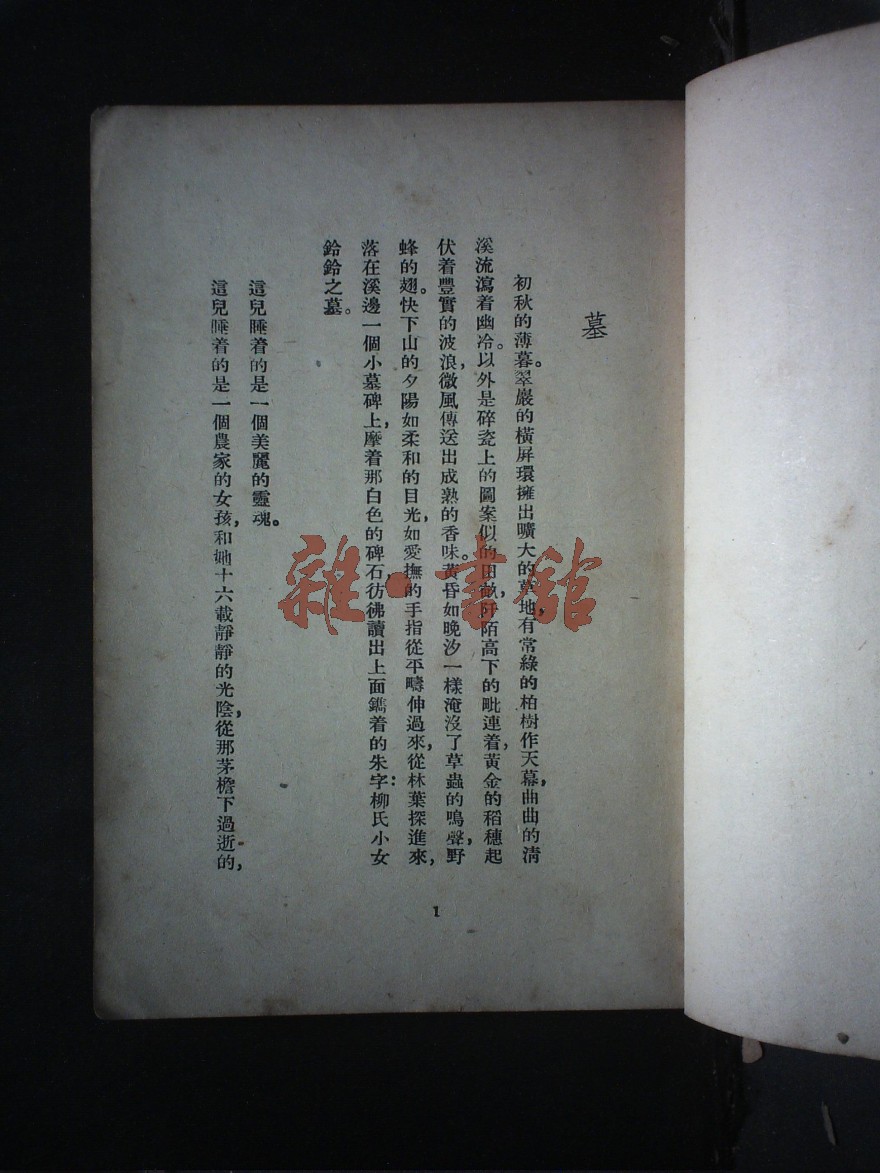 墓
初秋的薄暮。翠巖的橫屏環擁出曠大的草地,有常綠的柏樹作天幕,曲曲的清
溪流瀉着幽冷。以外是碎瓷上的圖案似的田畝,阡陌高下的毗連着,黃金的稻穗起
伏着豐實的波浪,微風傳送出成熟的香味。黃昏如晚汐一樣淹沒了草蟲的鳴聲,野
蜂的翅。快下山的夕陽如柔和的目光,如愛撫的手指從平疇伸過來,從林葉探進來,
落在溪邊一個小墓碑上,摩着那白色的碑石,彷彿讀出上面鐫着的朱字:柳氏小女
鈴鈴之墓。
這兒睡着的是一個美麗的靈魂。
這兒睡着的是一個農家的女孩,和她十六載靜靜的光陰,從那茅檐下過逝的,
1
雜·書館